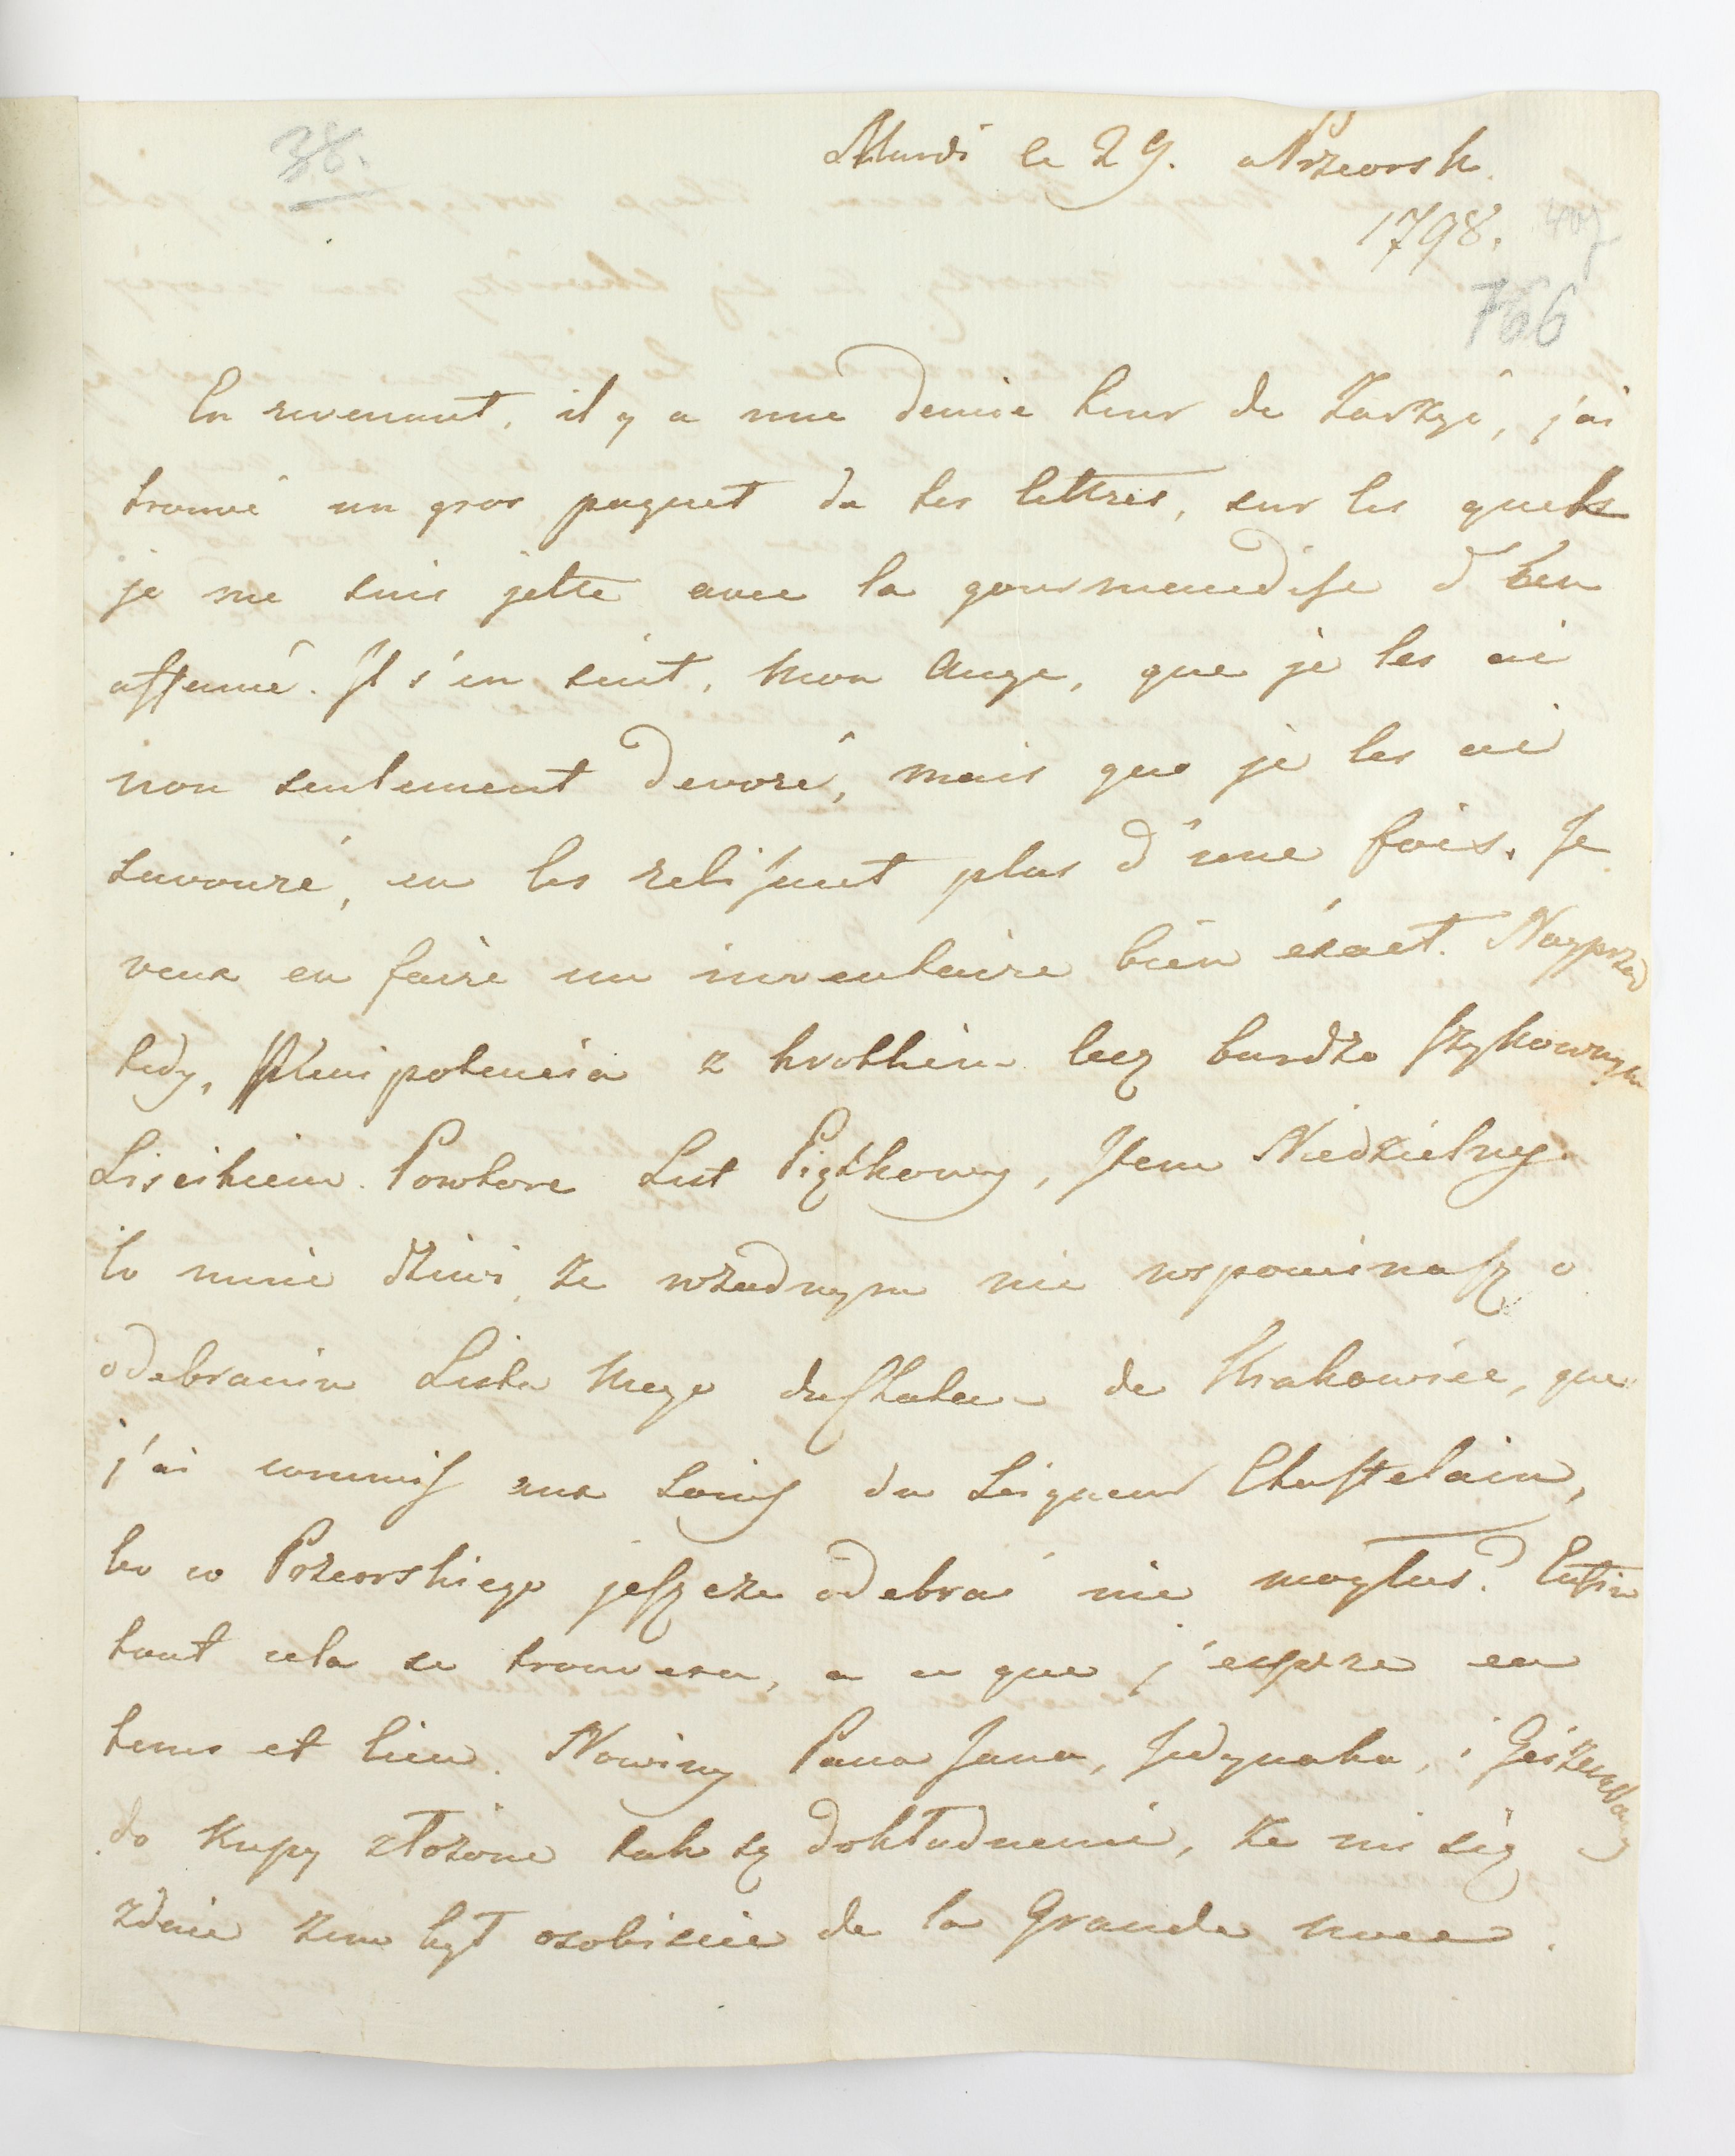 38.
Mardi le 29. a Przeorsk.
1798.
407
766
En revenant, il y a une demie heur de Zarzyć, j'ai
trouvé un gros paquet de tes lettres, sur les quels
je me suis jetté avec la gourmendise d'un
affamé. Il s'en suit, mon Ange, que je les ai
non seulement devoré, mais que je les ai
savouré, en les relisant plus d'une fois. Je
veux en faire un inventaire bien éxact. Nayprzod
tedy, Plenipotencia z krotkim lecz bardzo szykownym
Liscikiem. Powtore List Piątkowy, Item Niedzielny
to mnie dziwi, ze wzadnym nie wspominasz o
odebraniu Listu mego de Krakowiec, que
j'ai commis aux soins du Seigneur Chastelain,
bo co Przeorskiego jeszcze odebrać nie mogłas? Enfin
tout cela se trouvera, a ce que j'espere en
tems et lieu. Nowiny Pana Jana, Jedynaka, i
do kupy złożone tak są dokładnemi, ze mi się
zdaie zem był osobiscie de la Grande noce.